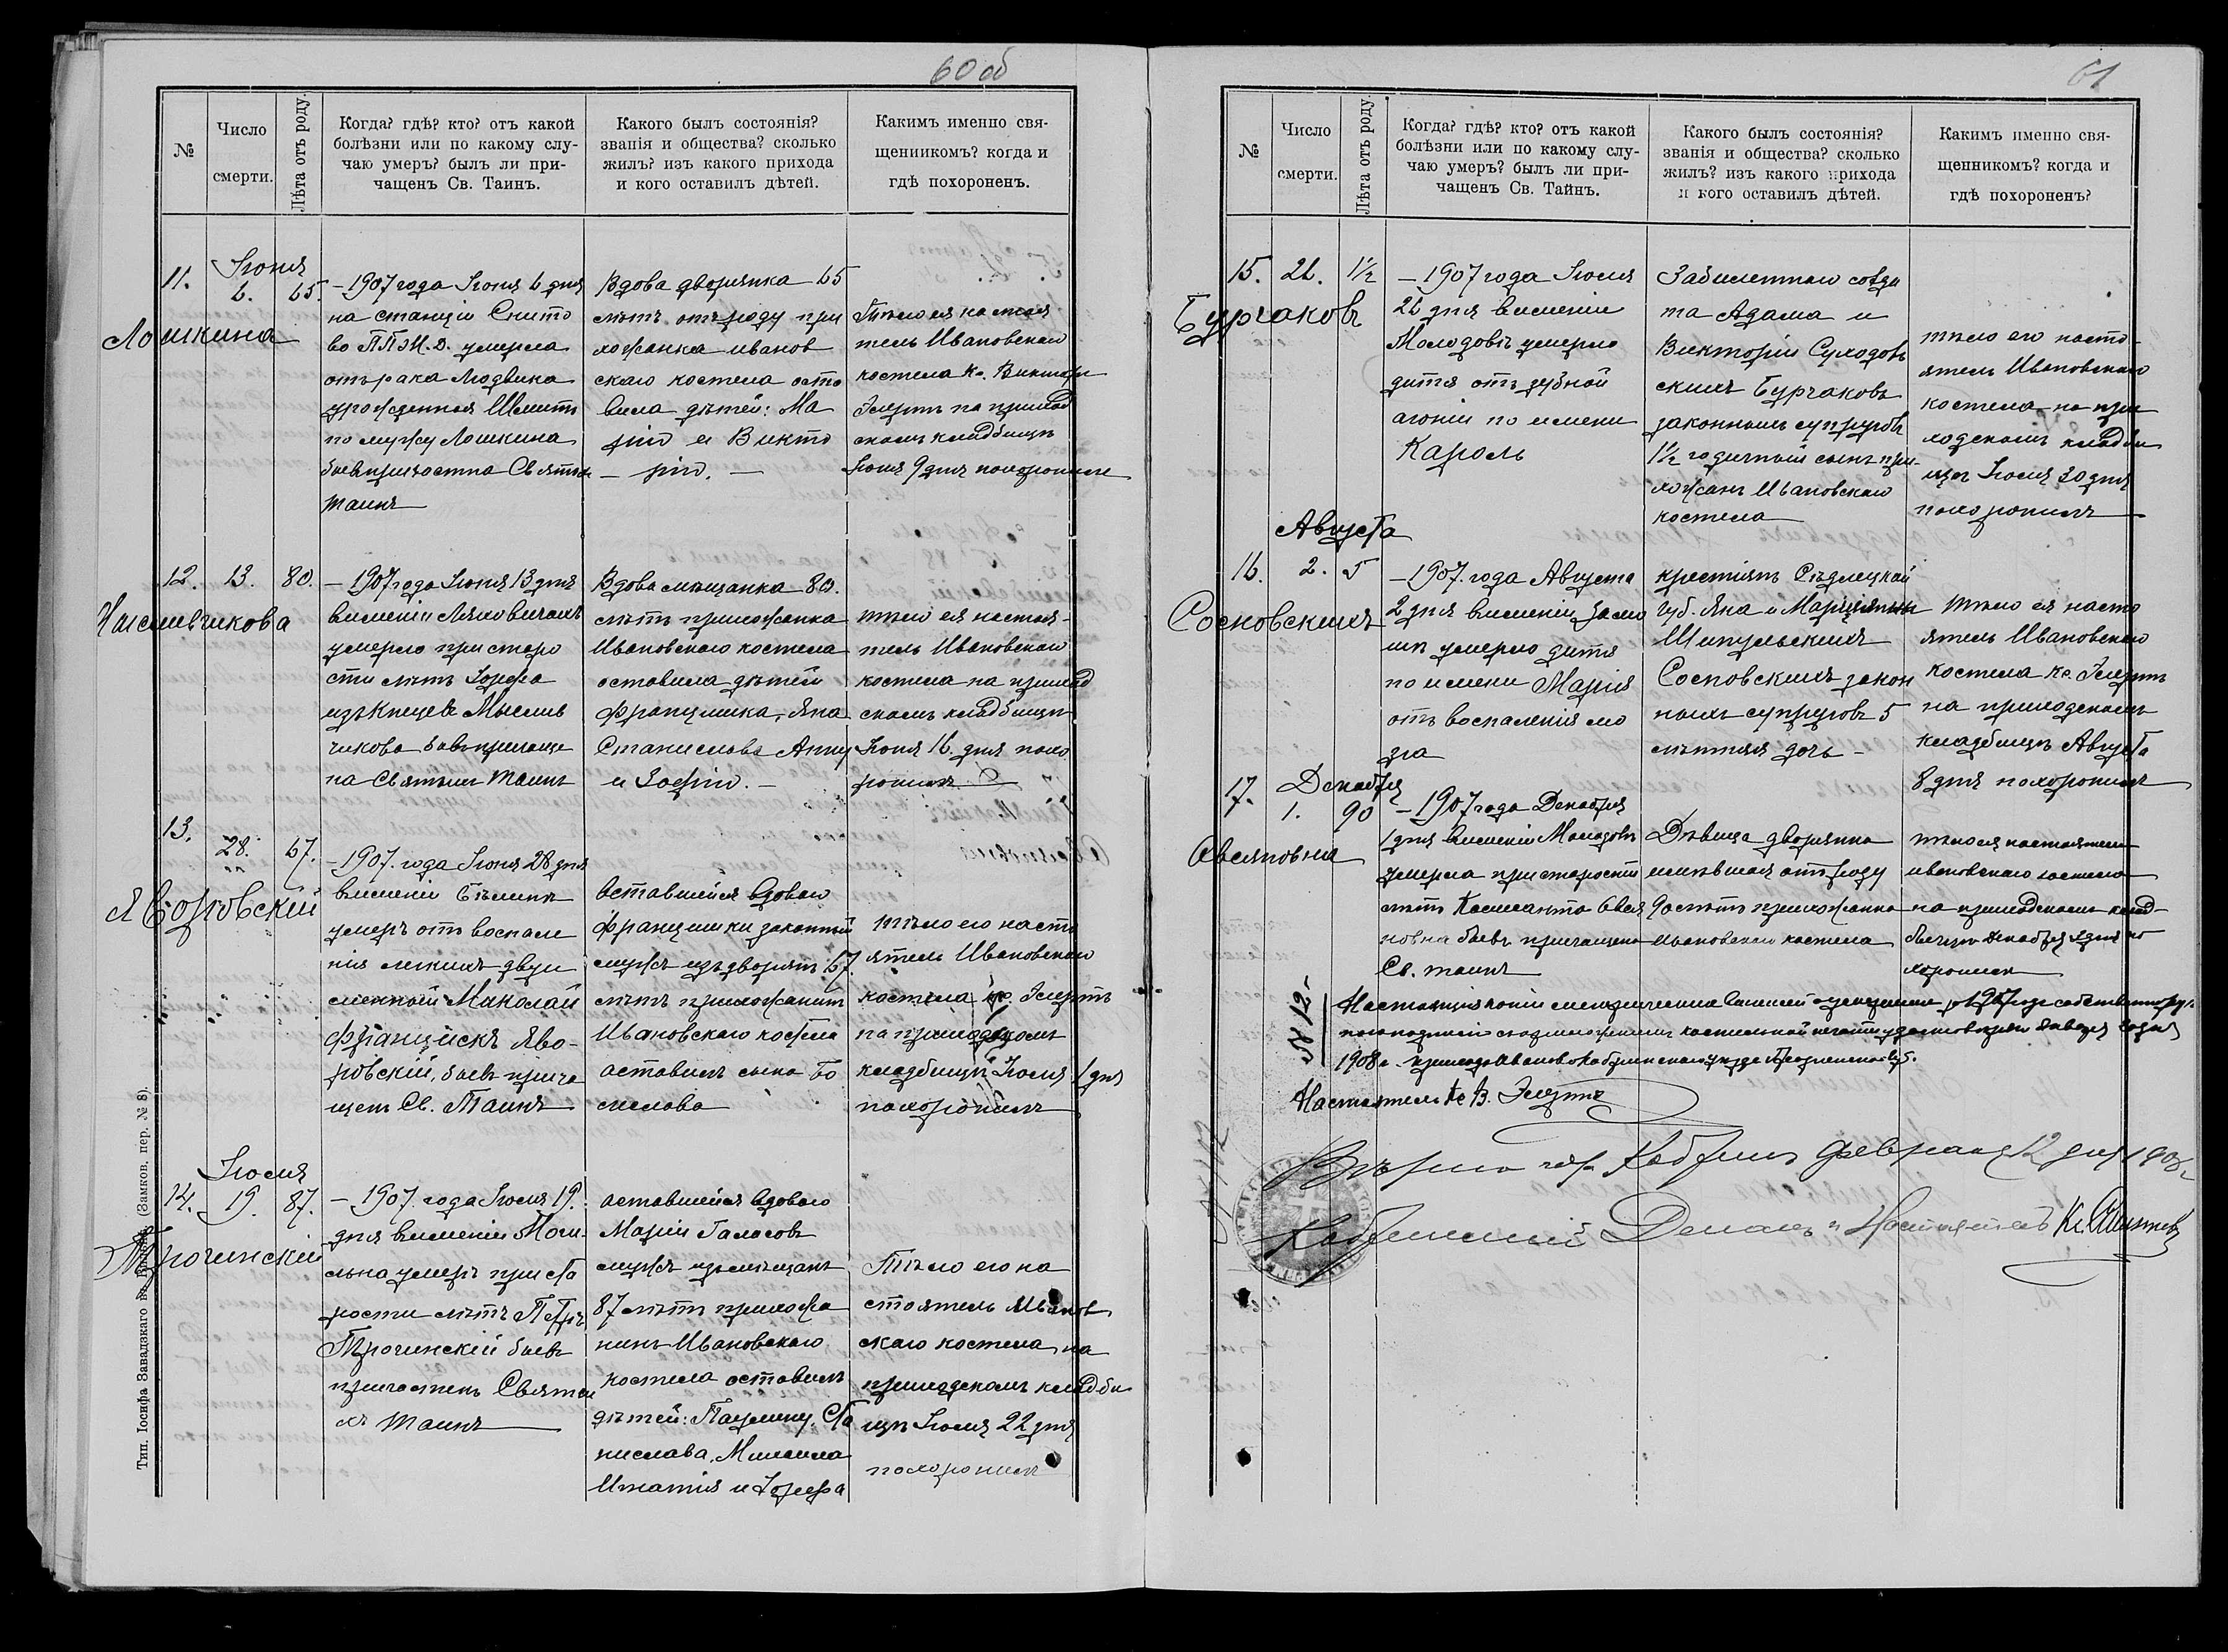 60 об
№
Число
смерти.
Лѣта отъ роду.
Когда? гдѣ? кто? отъ какой
болѣзни или по какому слу-
чаю умеръ? былъ ли при-
чащенъ Св. Таинъ.
Какого былъ состоянія?
званія и общества? сколько
жилъ? изъ какого прихода
и кого оставилъ дѣтей.
Какимъ именно свя-
щенникомъ? когда и
гдѣ похороненъ.
Іюня
11.
6.
65.
Лошкина
– 1907 года Іюня 6 дня
на станціи Снито
во П П Ж. Д. умерла
отъ рака Людвика
урожденная
по мужу Лошкина
бывъ причастна Святых
таинъ
Вдова дворянка 65
лѣтъ отъ роду при
хожанка иванов
скаго костела оста
вила дѣтей: Ма
рію и Викто
– рію. –
Тѣло ея настоя
тель Ивановскаго
костела Кс. Викторъ
на приход
скомъ кладбищѣ
Іюня 9 дня похоронилъ
12.
13.
80.
– 1907 года Іюня 13 дня
въ имѣніи Ляховичахъ
умерла при старо
сти лѣтъ Іозефа
изъ Мыслив
чикова бывъ причаще
на Святымъ таинъ
Вдова мѣщанка 80.
лѣтъ прихожанка
Ивановскаго костела
оставила дѣтей
Францишка, Яна
Станислава Анну
и Зофію. –
тѣло ея настоя-
тель Ивановскаго
костела на приход
скомъ кладбищѣ
Іюня 16. дня похо
ронилъ
13.
28.
67.
Яворовскій
– 1907. года Іюня 28 дня
въ имѣніи
умеръ отъ воспале
нія легкихъ двуи
менный Миколай
Францискъ Яво-
ровскій, бывъ прича
щенъ Св. Таинъ
Оставшійся вдовою
Францишки законный
мужъ изъ дворянъ 67.
лѣтъ прихожанинъ
Ивановскаго костела
оставилъ сына Бо
леслава
тѣло его насто
ятель Ивановскаго
костела кс.
на приходскомъ
кладбищѣ Іюля 1 дня
похоронилъ
Іюля
14.
19.
87.
Трочинскій
– 1907. года Іюля 19.
дня въ имѣніи
умеръ при ста
рости лѣтъ Петръ
Трочинскій бывъ
причастенъ Святы
хъ таинъ
оставшійся вдовою
Маріи Галасовъ
мужъ изъ мѣщанъ
87 лѣтъ прихожа
нинъ Ивановскаго
костела оставилъ
дѣтей: Паулину, Ста
нислава, Михаила
Игнатія и Іозефа
Тѣло его на
стоятель Иванов
скаго костела на
приходскомъ кладби
щѣ Іюля 22 дня
похоронилъ
Тип. Іосифа Завадзкаго (Замков. пер. № 8).
61
№
Число
смерти.
Лѣта отъ роду.
Когда? гдѣ? кто? отъ какой
болѣзни или по какому слу-
чаю умеръ? былъ ли при-
чащенъ Св. Тайнъ.
Какого былъ состоянія?
званія и общества? сколько
жилъ? изъ какого прихода
и кого оставилъ дѣтей.
Какимъ именно свя-
щенникомъ? когда и
гдѣ похороненъ?
15.
26.
1½
Бурчаковъ
– 1907 года Іюля
26 дня въ имѣніи
Молодовъ умерло
дитя отъ зубной
агоніи по имени
Кароль
Забилетнаго солда
та Адама и
Викторіи Суходов
скихъ Бурчаковъ
законныхъ супруговъ
1½ годичный сынъ при-
хожанъ Ивановскаго
костела
тѣло его насто-
ятель Ивановскаго
костела на при
ходскомъ кладби
щѣ Іюля 30 дня
похоронилъ
Августа
16.
2.
5
Сосновскихъ
– 1907. года Августа
2 дня въ имѣніи
умерло дитя
по имени Марія
отъ воспаленія мо
зга
крестьянъ Сѣдлецкой
губ. Яна и Марціянны
Шипульскихъ
Сосновскихъ закон
ныхъ супруговъ 5
лѣтняя дочь –
тѣло ея насто
ятель Ивановскаго
костела кс.
на приходскомъ
кладбищѣ Августа
8 дня похоронилъ
Декабря
17.
1.
90
Овсяновна
– 1907 года Декабря
1 дня въ имѣніи Молодовъ
умерла при старости
лѣтъ Константа Овся
новна бывъ причащена
Св. таинъ
Дѣвица дворянка
имѣвшая отъ роду
90 лѣтъ прихожанка
Ивановскаго костела
тѣло ея настоятель
ивановскаго костела
на приходскомъ клад-
бищѣ Декабря дня по
хоронилъ
№ 12-
1908 г.
Настоятель Кс В.
Вѣрно гор. Кобринъ Февраля 12 дня 1908 г.
Кобринскій Деканъ и Настоятель Кс.